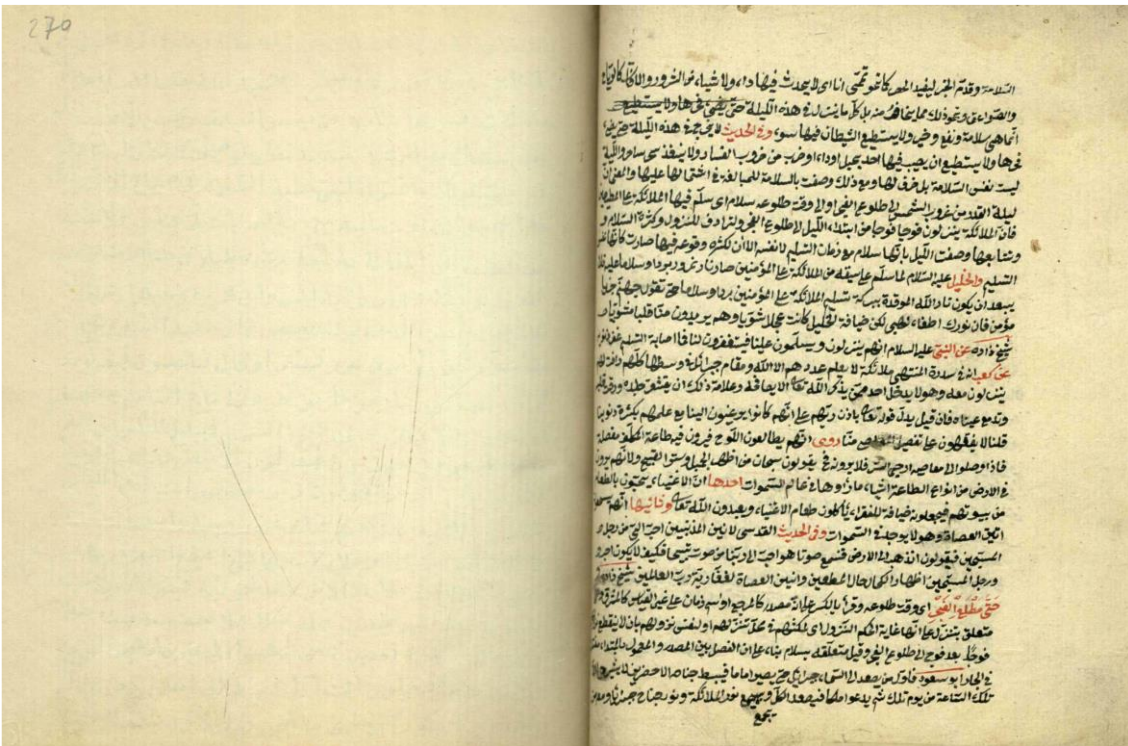 270
السلامة وقدم الخبر ليفيد الحصر كما نحو تميمى انا اى لا يحدث فيها داء ولا شيئا من الشرور والآفات كالرياح
والصواعق ونحو ذلك مما يخاف منه بل كل ما ينزل فى هذه الليلة حتى يضئ فجرها ولا يستطيع
انما هى سلامة ونفع وخير ولا يستطيع الشيطان فيها سوء وفى الحديث لا يخرج فى هذه الليلة حتى يضئ
فجرها ولا يستطيع ان يصيب فيها احد بخبل او داء او ضرب من ضروب الفساد ولا ينفذ سحر ساحر والليلة
ليست نفس السلامة بل ظرف لها ومع ذلك وصفت بالسلامة للمبالغة فى اشتمالها عليها والمعنى ان
ليلة القدر من غروب الشمس الى طلوع الفجر او الى وقت طلوعه سلام اى سلم فيها الملائكة على المطيعين
فان الملائكة ينزلون فوجا فوجا من ابتداء الليل الى طلوع الفجر ولترادف النزول وكثرة السلام و
وتتابعها وصفت الليل بانها سلام مع زمان التسليم لا نفسه الا ان لكثرة وقوعه فيها صارت كانها نفس
التسليم والخليل عليه السلام لما سلم عليه من الملائكة على المؤمنين صار نار نمرود بردا وسلاما عليه فلا
يبعد ان يكون نار الله الموقدة ببركة تسليم الملائكة على المؤمنين بردا وسلاما حتى تقول جهنم جز يا
مؤمن فان نورك اطفاء لهبى لكن ضيافة الخليل كانت عجلا مشويا وهم يريدون منا قلبا مشويا
شيخ زاده عن النبى عليه السلام انهم ينزلون ويسلمون علينا فيستغفرون لنا فمن اصابه التسليم غفر له
عن كعب ان فى سدرة المنتهى ملائكة لا يعلم عددهم الا الله ومقام جبرائيل فى وسطها كلهم
ينزلون معه وهو لا يدخل احد ممن يذكر الله تعالى الا يصافحه وعلامة ذلك ان يقشعر جلده ورق قلبه
وتدمع عيناه فان قيل يدل قوله تعالى باذن ربهم على انهم كانوا يرغبون الينا مع علمهم بكثرة ذنوبنا
قلنا لا يقفون على تفصيل المعاصى منا روى انهم يطالعون اللوح فيرون فيه طاعة المكلف مفصلة
فاذا وصلوا الى معاصيه ارخى الستر فلا يرونه فح يقولون سبحان من اظهر الجميل وستر القبيح ولانهم يرون
فى الارض من انواع الطاعة اشياء ما راوها فى عالم السموات احدها ان الاغنياء يجيئون بالطعام
من بيوتهم فيجعلونه ضيافة للفقراء يأكلون طعام الاغنياء ويعبدون الله تعالى وثانيها انهم يسمعون
انين العصاة وهو لا يوجد فى السموات وفى الحديث القدسى لانين المذنبين احب الى من زجل
المسبحين فيقولون نذهب الى الارض فنسمع صوتا هو احب الى ربنا من صوت تسبيحنا فكيف لا يكون احب
وزجل المسبحين اظهار لكمال حال المطيعين وانين العصاة لغفارية رب العالمين شيخ زاده
حتى مطلع الفجر اى وقت طلوعه وقرأ بالكسر على انه مصدر كالمرجع او اسم زمان على غير القياس كالمشرق
متعلق بتنزل على انها غاية لحكم التنزل اى لمكثهم فى محل تنزلهم او لنفس نزولهم بان لا ينقطع
فوجا بعد فوج الى طلوع الفجر وقيل متعلقة بسلام بناء على ان الفصل بين المصدر والمعمول بالمبتدأ
فى الجار ابو سعود فاول من يصعد الى السماء جبرائيل حتى يصير اماما فيبسط جناحه الاخضرين
تلك الساعة من يوم تلك ثم يدعو ملكا ملكا فيصعد الكل ويجتمع نور الملائكة ونور جناح جبرائيل
يجمع